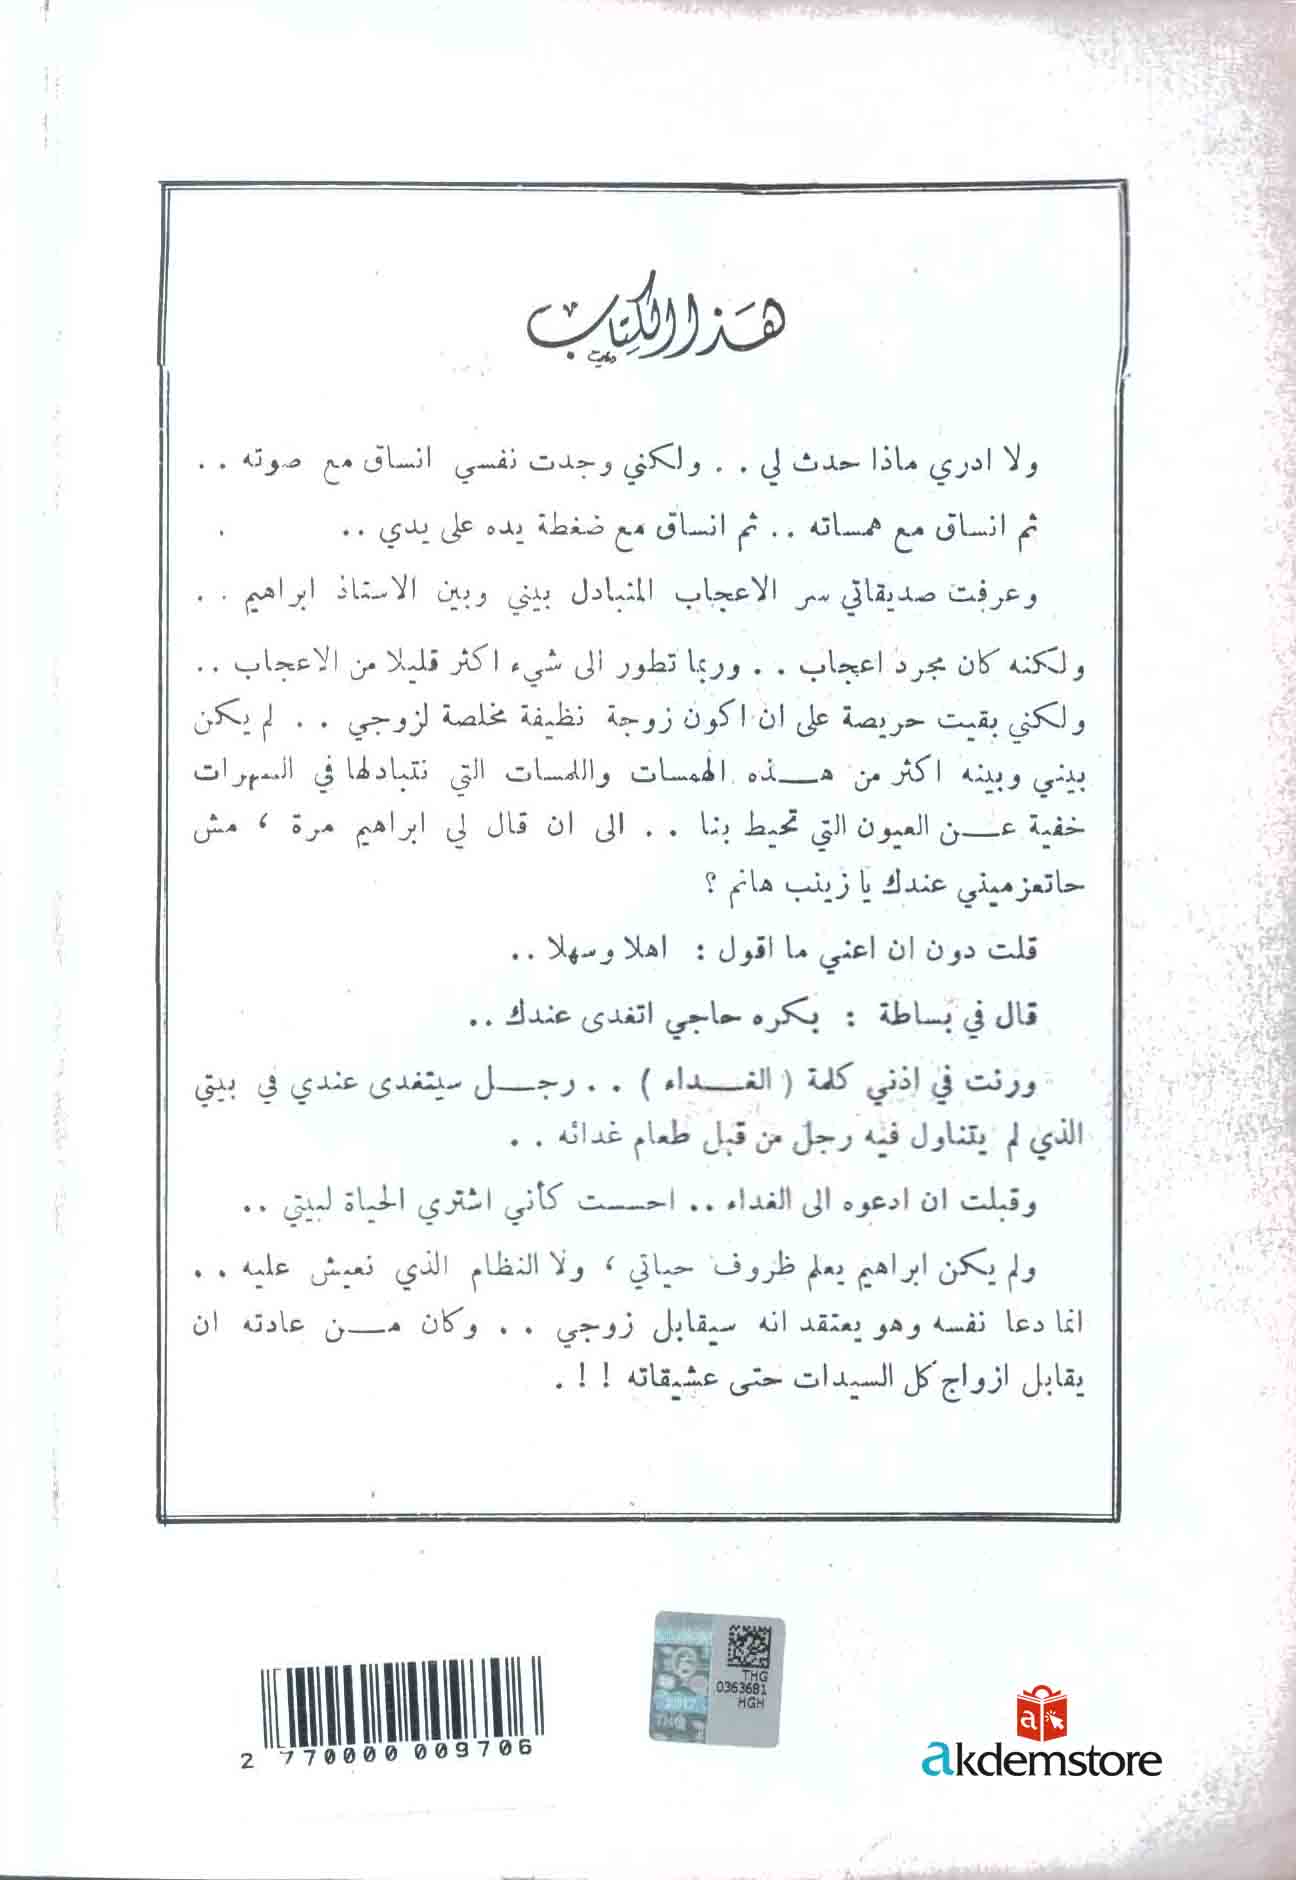 هَذا الكِتاب
ولا ادري ماذا حدث لي . . ولكني وجدت نفسي انساق مع صوته . .
ثم انساق مع همساته . . ثم انساق مع ضغطة يده على يدي . .
وعرفت صديقاتي سر الاعجاب المتبادل بيني وبين الاستاذ ابراهيم . .
ولكنه كان مجرد اعجاب . . وربما تطور الى شيء اكثر قليلا من الاعجاب . .
ولكني بقيت حريصة على ان اكون زوجة نظيفة مخلصة لزوجي . . لم يكن
بيني وبينه اكثر من هـــذه الهمسات واللمسات التي نتبادلها في السهرات
خفية عـــن العيون التي تحيط بنا . . الى ان قال لي ابراهيم مرة ، مش
حاتعزميني عندك يا زينب هانم ؟
قلت دون ان اعني ما اقول : اهلا وسهلا . .
قال في بساطة : بكره حاجي اتغدى عندك . .
ورنت في اذني كلمة ( الغـــداء ) . . رجـــل سيتغدى عندي في بيتي
الذي لم يتناول فيه رجل من قبل طعام غدائه . .
وقبلت ان ادعوه الى الغداء . . احسست كأني اشتري الحياة لبيتي . .
ولم يكن ابراهيم يعلم ظروف حياتي ، ولا النظام الذي نعيش عليه . .
انما دعا نفسه وهو يعتقد انه سيقابل زوجي . . وكان مـــن عادته ان
يقابل ازواج كل السيدات حتى عشيقاته ! ! .
THG
0363681
HGH
2017
THG
2 770000 009706
a
akdemstore